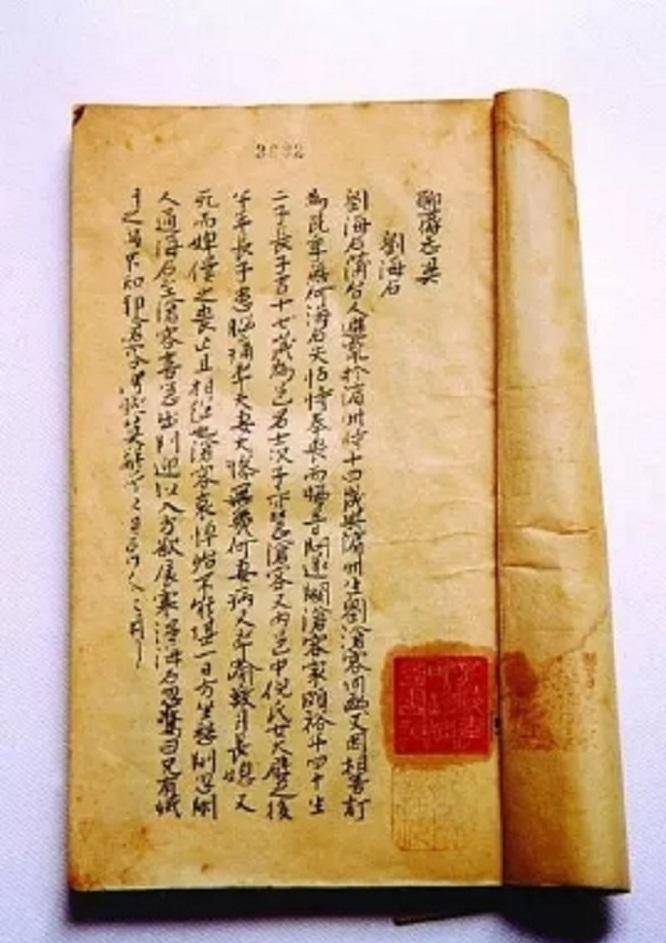 聊齋志異
劉海石
劉海石蒲台人避亂於濱州時十四歲與濱州生劉滄客同函丈因相善訂
為昆季無何海石失怙恃奉喪而歸音問遂闕滄客家頗裕年四十生
二子長子吉十七歲為邑名士次子亦慧滄客又內邑中倪氏女大嬖之後
半年長子患腦痛卒夫妻大慘無幾何妻病又卒逾數月長媳又
死而婢僕之喪亡且相繼也滄客哀悼殆不能堪一日方坐愁間忽閽
人通海石至滄客喜急出門迎以入方欲展寒溫海石忽驚曰兄有滅
門之禍不知耶